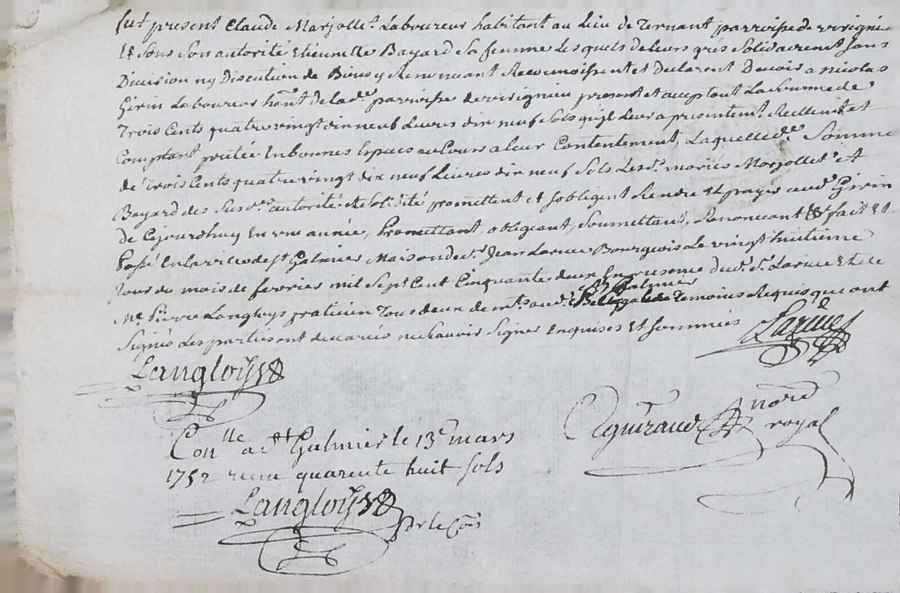 fut présent Claude Marjollet Laboureur habitant au Lieu de Ternant parroisse de virignieu
Et sous son autorité Etiennette Bayard sa femme Lesquels de leurs grés solidairement sans
Division ny Discution de Biens y Renoncant Reconnoissent et declarent Devoir a nicolas
Girin Laboureur hant de lade parroisse de virignieu present et acceptant La somme de
Trois Cents quatre vingt dix neuf Livres dix neuf sols qu'il Leur a présentemt Réellemt et
Comptant pretée En bonnes Espèces au Cours a leur Contentement, Laquelle de Somme
de trois Cents quatre vingt dix neuf Livres dix neuf sols Lesds mariés Marjollet et
Bayard des susdes autorité et solidité promettent et sobligent Rendre et payer audt Girin
de Cejourdhuy En une année, Promettant, obligeant, Soumettant, Renoncant &c fait et
Passé En la ville de st Galmier Maison de sr Jean Larue Bourgeois Le vingt huitieme
Jour du mois de fevrier mil sept Cent Cinquante deux En presence dudt sr Larue Et de
Me Pierre Langloys praticien Tous deux de audt st Galmier Temoins Requis qui ont
Signés Les parties ont declarés ne sçavoir Signer Enquises Et sommées
Larue
Langloys
Aguiraud nore
royal
Conlle a st Galmier le 13e mars
1752 recu quarente huit sols
Langloys